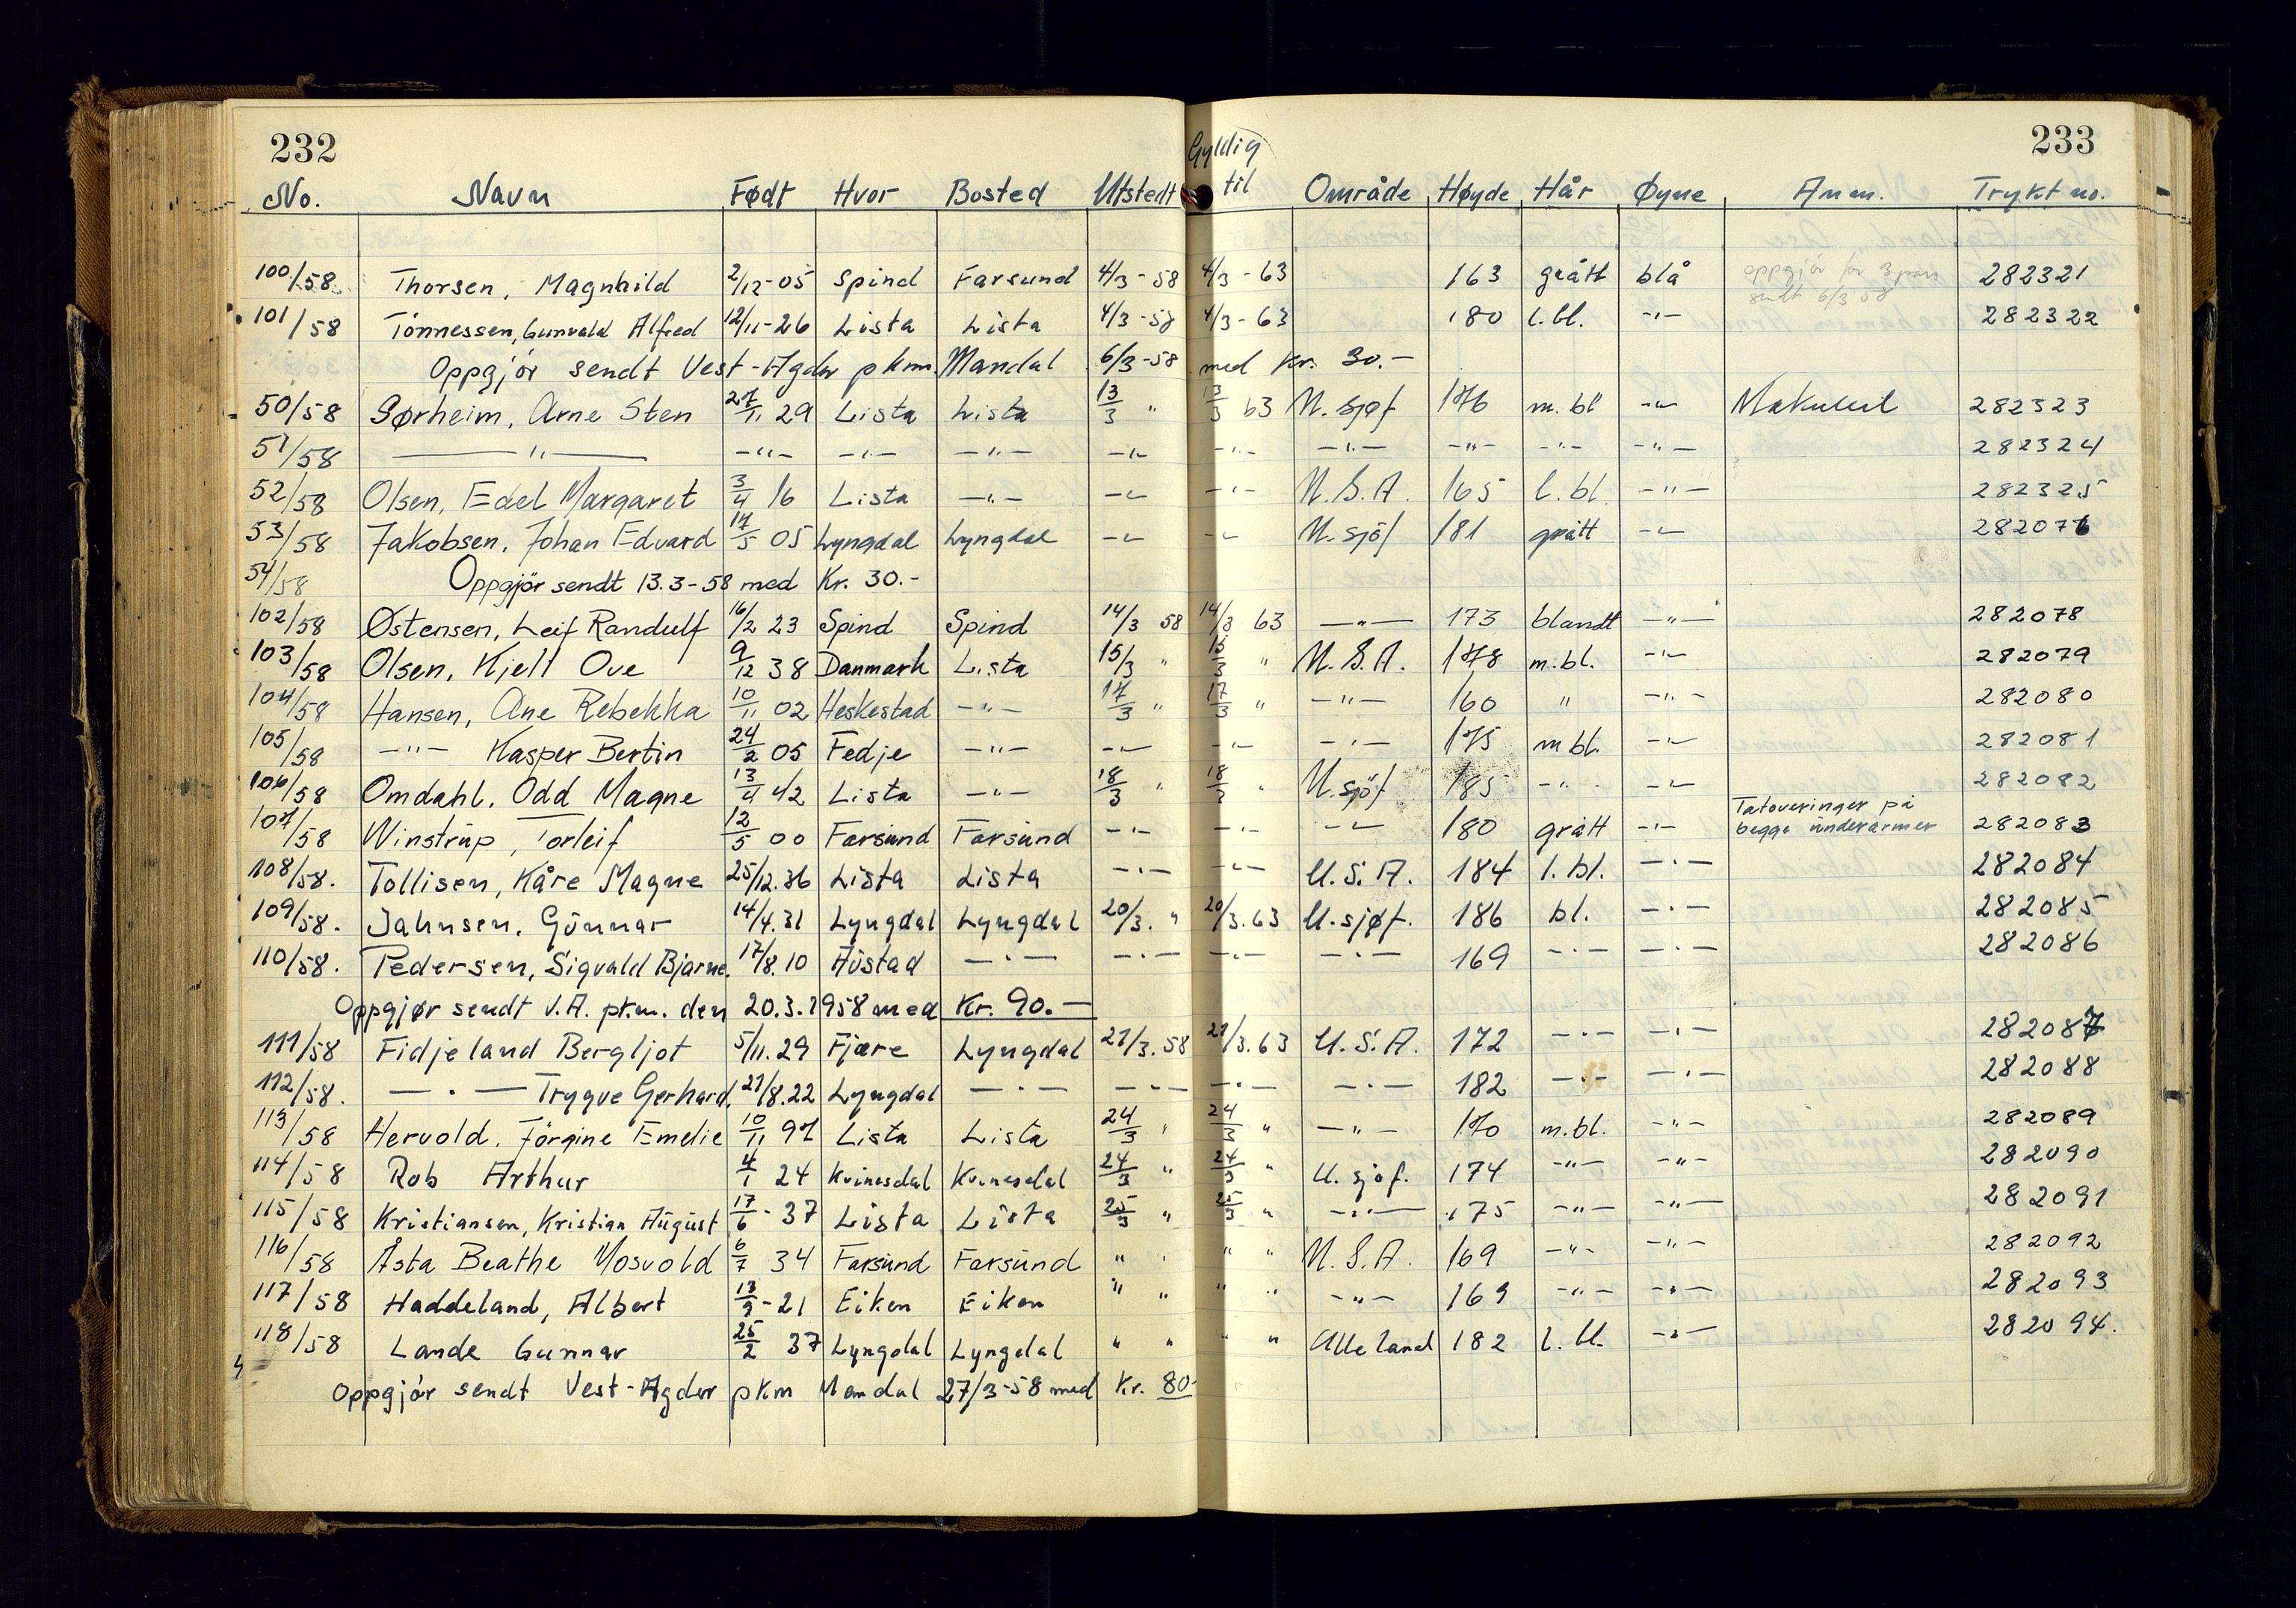 232
Gyldig
233
No. Navn Født Hvor Bosted Utstedt til Område Høyde Hår Øyne Anm. Trykt no.
100/58 Thorsen, Magnhild 2/12-05 Spind Farsund 4/3-58 4/3-63 163 grått blå oppgjör for 3 pass 282321
sendt 6/3 58
101/58 Tönnessen, Gunvald Alfred 12/11-26 Lista Lista 4/3-58 4/3-63 180 l.bl. -"- 282322
Oppgjör sendt Vest-Agder pkm. Mandal 6/3-58 med Kr. 30.-
50/58 Sørheim, Arne Sten 27/11 29 Lista Lista 13/3 " 13/3 63 U. sjøf 176 m. bl -"- Makulert 282323
51/58 -"- -"- -"- -"- -"- -"- -"- -"- -"- -"- 282324
52/58 Olsen, Edel Margaret 3/4 16 Lista -"- -"- -"- U.S.A. 165 l. bl. -"- 282325
53/58 Jakobsen, Johan Edvard 17/5 05 Lyngdal Lyngdal -"- -"- U. sjöf 181 grått -"- 282076
54/58 Oppgjör sendt 13.3-58 med Kr. 30.-
102/58 Østensen, Leif Randulf 16/2 23 Spind Spind 14/3 58 14/3 63 -"- 173 blandt -"- 282078
103/58 Olsen, Kjell Ove 9/12 38 Danmark Lista 15/3 " 15/3 " U.S.A. 178 m.bl. -"- 282079
104/58 Hansen, Ane Rebekka 10/11 02 Heskestad -"- 17/3 " 17/3 " -"- 160 " -"- 282080
105/58 -"- Kasper Bertin 24/2 05 Fedje -"- -"- -"- -"- 175 m bl. -"- 282081
106/58 Omdahl, Odd Magne 13/4 42 Lista -"- 18/3 " 18/3 " U. sjöf 185 -"- -"- 282082
107/58 Winstrup, Torleif 12/5 00 Farsund Farsund -"- -"- -"- 180 grått -"- Tatoveringer på begge underarmer 282083
108/58. Tollisen, Kåre Magne 25/12.36 Lista Lista -"- -"- U.S.A. 184 l. bl. -"- 282084
109/58. Jahnsen, Gunnar 14/4.31 Lyngdal Lyngdal 20/3. " 20/3.63 U.sjøf. 186 bl. -"- 282085
110/58. Pedersen, Sigvald Bjarne. 17/8.10 Austad -"- -"- -"- -"- 169 -"- -"- 282086
Oppgjør sendt V.A. pkm. den 20.3.1958 med Kr. 90.-
111/58 Fidjeland Bergljot 5/11.29 Fjære Lyngdal 21/3.58 21/3.63 U.S.A. 172 -"- -"- 282087
112/58. -"- Trygve Gerhard. 21/8.22 Lyngdal -"- -"- -"- -"- 182 -"- -"- 282088
113/58 Hervold, Jörgine Emelie 10/11 97 Lista Lista 24/3 " 24/3 " -"- 170 m.bl. -"- 282089
114/58 Rob Arthur 4/1 24 Kvinesdal Kvinesdal 24/3 " 24/3 " U. sjöf. 174 -"- -"- 282090
115/58 Kristiansen, Kristian August 17/6-37 Lista Lista 25/3 " 25/3 " -"- 175 -"- -"- 282091
116/58 Åsta Beathe Mosvold 6/7 34 Farsund Farsund " " " " U.S.A. 169 -"- -"- 282092
117/58 Haddeland, Albert 13/9-21 Eiken Eiken " " " " -"- 169 -"- -"- 282093
118/58 Lande Gunnar 25/2 37 Lyngdal Lyngdal " " " " Alle land 182 l. bl. -"- 282094.
Oppgjör sendt Vest-Agder pkm Mandal 27/3-58 med Kr. 80-